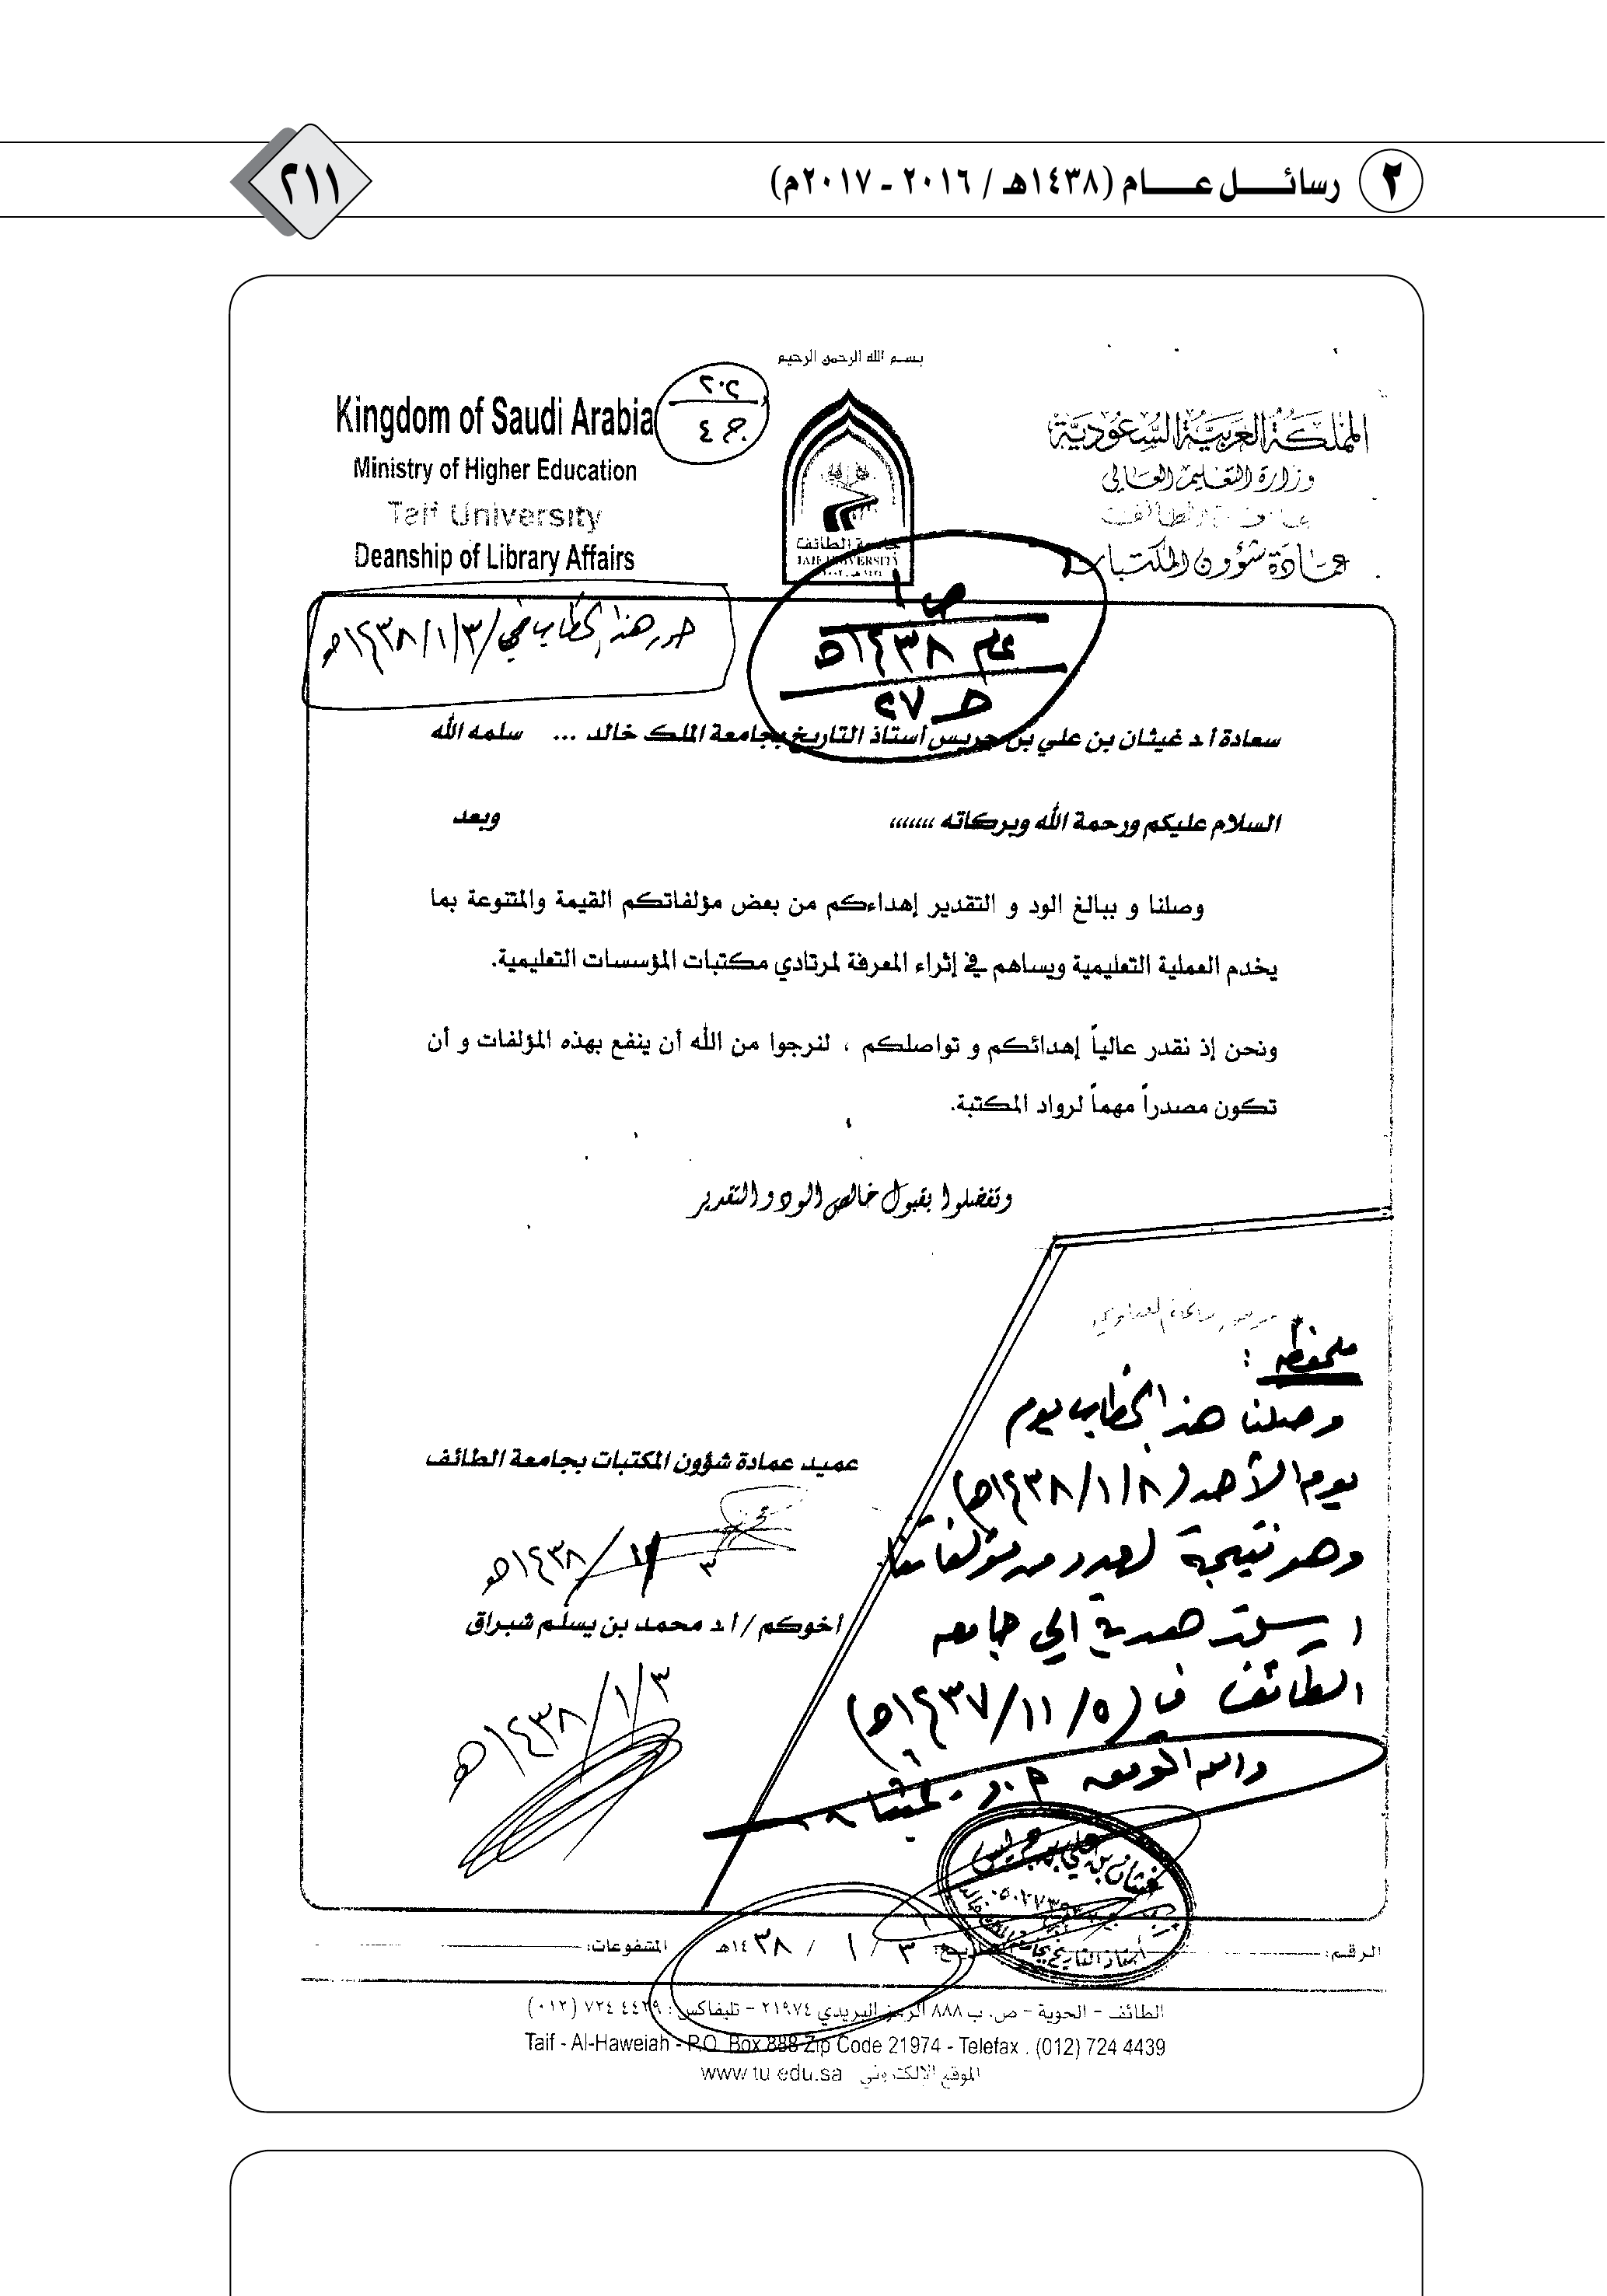 ٢ رسائل عام (١٤٣٨هـ / ٢٠١٦ - ٢٠١٧م)
٢١١
بسم الله الرحمن الرحيم
المملكة العربية السعودية
وزارة التعليم العالي
جامعة الطائف
عمادة شؤون المكتبات
Kingdom of Saudi Arabia
Ministry of Higher Education
Taif University
Deanship of Library Affairs
٢٠٢
ج ٤
جامعة الطائف
TAIF UNIVERSITY
ص ١
عام ١٤٣٨هـ
ح ٢٧
حرر هذا الخطاب في ١٤٣٨/١/٣هـ
سعادة أ د غيثان بن علي بن جريس أستاذ التاريخ بجامعة الملك خالد ... سلمه الله
السلام عليكم ورحمة الله وبركاته ،،،،،،، وبعد
وصلنا و ببالغ الود و التقدير إهداءكم من بعض مؤلفاتكم القيمة والمتنوعة بما
يخدم العملية التعليمية ويساهم في إثراء المعرفة لمرتادي مكتبات المؤسسات التعليمية.
ونحن إذ نقدر عالياً إهدائكم و تواصلكم ، لنرجوا من الله أن ينفع بهذه المؤلفات و أن
تكون مصدراً مهماً لرواد المكتبة.
وتفضلوا بقبول خالص الود و التقدير
عميد عمادة شؤون المكتبات بجامعة الطائف
٣ / ١ / ١٤٣٨هـ
أخوكم / أ د محمد بن يسلم شبراق
٣ / ١ / ١٤٣٨هـ
ملحوظة :
وصلنا هذا الخطاب يوم
يوم الأحد (١٤٣٨/١/٨هـ)
وهو نتيجة لعدد من مؤلفاتنا
أرسلت هدية إلى جامعة
الطائف في (١٤٣٧/١١/٥هـ)
والله الموفق أ . د . غيثان
غيثان بن علي بن جريس
أستاذ التاريخ بجامعة الملك خالد
الرقم: التاريخ: ٣ / ١ / ١٤٣٨هـ المشفوعات:
الطائف - الحوية - ص. ب ٨٨٨ الرمز البريدي ٢١٩٧٤ - تليفاكس : ٤٤٣٩ ٧٢٤ (٠١٢)
Taif - Al-Haweiah - P.O. Box 888 Zip Code 21974 - Telefax . (012) 724 4439
الموقع الإلكتروني www tu edu.sa